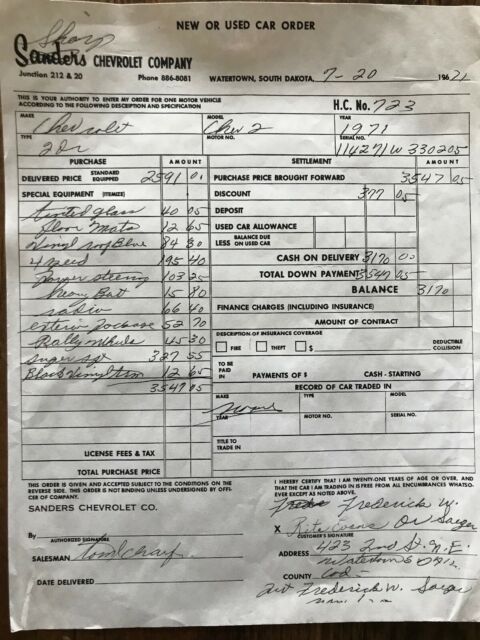 NEW OR USED CAR ORDER
Sharp
Sanders CHEVROLET COMPANY
Junction 212 & 20 Phone 886-8081 WATERTOWN, SOUTH DAKOTA, 7-20 19671
THIS IS YOUR AUTHORITY TO ENTER MY ORDER FOR ONE MOTOR VEHICLE
ACCORDING TO THE FOLLOWING DESCRIPTION AND SPECIFICATION H.C. No. 723
MAKE MODEL YEAR
Chevrolet Chev 2 1971
TYPE MOTOR NO. SERIAL NO.
2Dr 114271W330205
PURCHASE AMOUNT SETTLEMENT AMOUNT
DELIVERED PRICE STANDARD EQUIPPED 2591 01 PURCHASE PRICE BROUGHT FORWARD 3547 05
SPECIAL EQUIPMENT (ITEMIZE) DISCOUNT 377 05
tinted glass 40 05 DEPOSIT
floor mats 12 65 USED CAR ALLOWANCE
Vinyl top Blue 84 30 LESS BALANCE DUE ON USED CAR
4 speed 195 40 CASH ON DELIVERY 3170 00
Power steering 103 25 TOTAL DOWN PAYMENT 3547 05
Heavy Bat 15 80 BALANCE 3170
radio 66 40 FINANCE CHARGES (INCLUDING INSURANCE)
52 70 AMOUNT OF CONTRACT
Rally Wheels 45 30 DESCRIPTION OF INSURANCE COVERAGE
FIRE THEFT $ DEDUCTIBLE COLLISION
327 55
Black Vinyl trim 12 65 TO BE PAID IN PAYMENTS OF $ CASH - STARTING
3547 05 RECORD OF CAR TRADED IN
MAKE TYPE MODEL
none
YEAR MOTOR NO. SERIAL NO.
TITLE TO TRADE IN
LICENSE FEES & TAX
TOTAL PURCHASE PRICE
THIS ORDER IS GIVEN AND ACCEPTED SUBJECT TO THE CONDITIONS ON THE
REVERSE SIDE. THIS ORDER IS NOT BINDING UNLESS UNDERSIGNED BY OFFI-
CER OF COMPANY.
I HEREBY CERTIFY THAT I AM TWENTY-ONE YEARS OF AGE OR OVER, AND
THAT THE CAR I AM TRADING IN IS FREE FROM ALL ENCUMBRANCES WHATSO-
EVER EXCEPT AS NOTED ABOVE.
SANDERS CHEVROLET CO.
Frederick W.
X Rite Evans Or Saeger
CUSTOMER'S SIGNATURE
By
AUTHORIZED SIGNATURE
ADDRESS 423 2nd St. N.E.
Watertown
SALESMAN
COUNTY Cod
DATE DELIVERED
Frederick W. Saeger